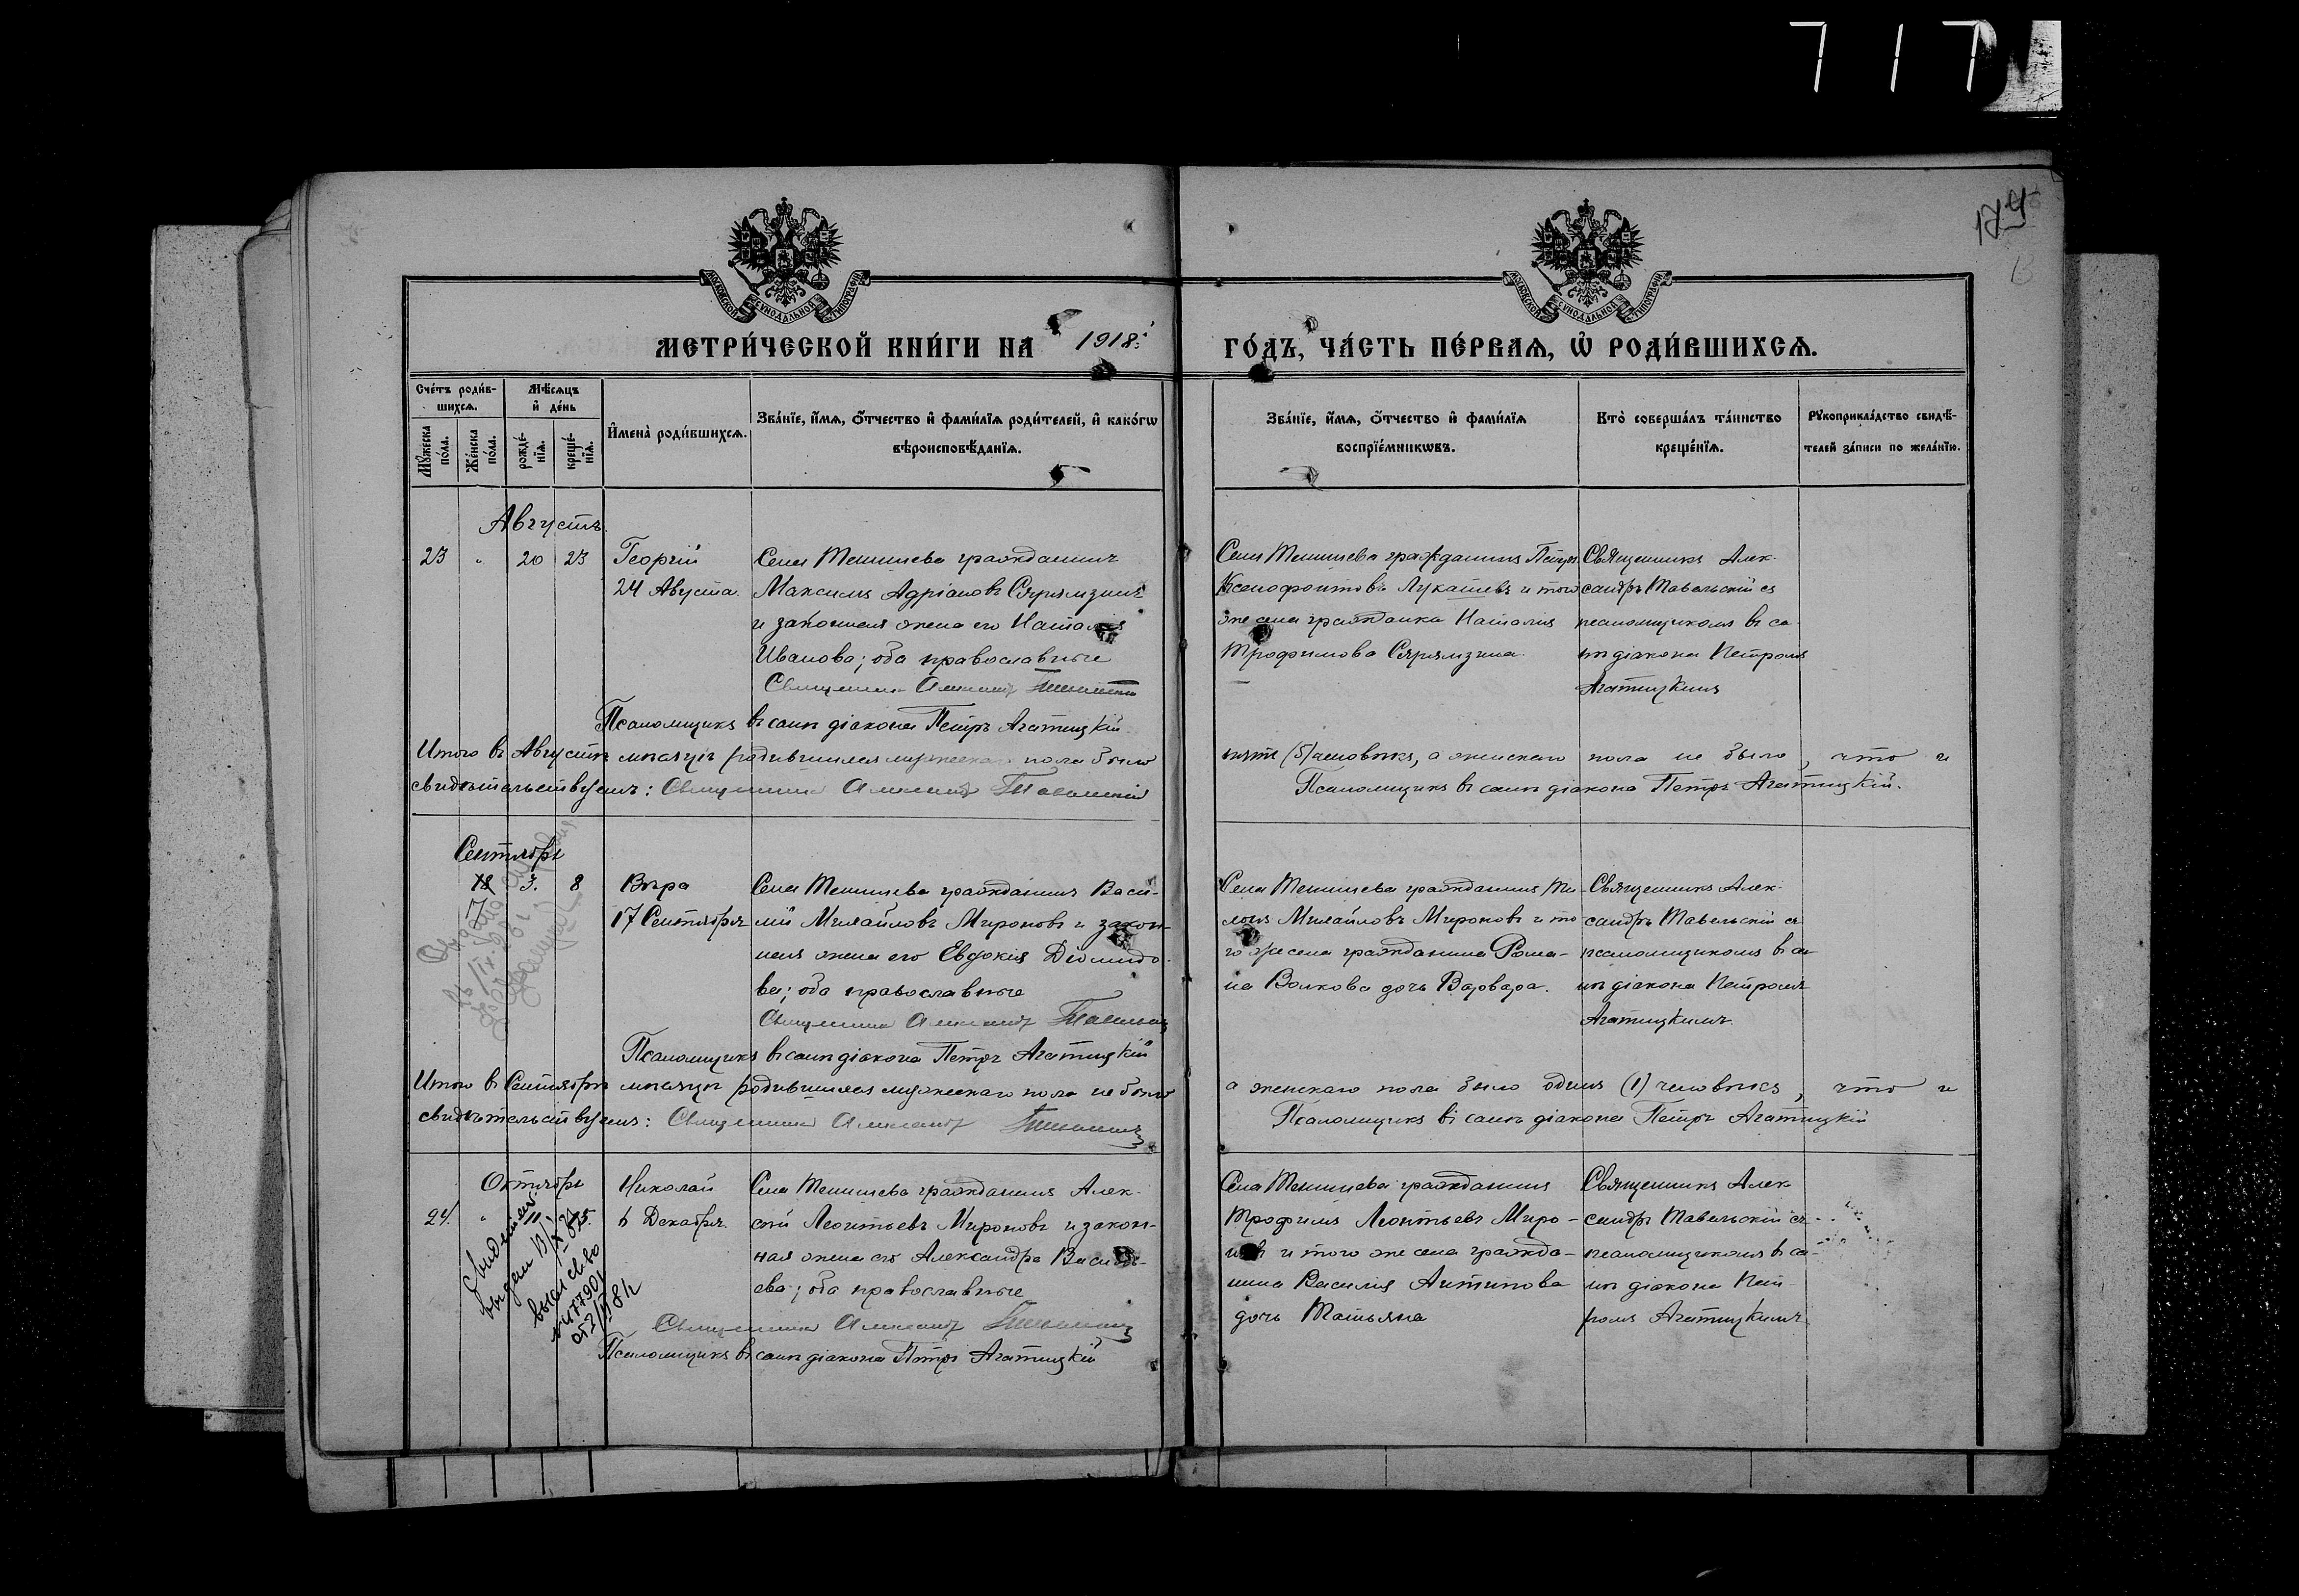 717
174
МОСКОВСКОЙ СѴНОДАЛЬНОЙ ТИПОГРАФІИ
МОСКОВСКОЙ СѴНОДАЛЬНОЙ ТИПОГРАФІИ
МЕТРИ́ЧЕСКОЙ КНИ́ГИ НА 1918 ГО́ДЪ, ЧА́СТЬ ПЕ́РВАѦ, Ѡ҆ РОДИ́ВШИХСѦ.
Сче́тъ роди́в-
шихсѧ.
Мꙋ́жеска по́ла.
Же́нска по́ла.
Мѣ́сѧцъ
и҆ де́нь
рожде́-
нїѧ.
креще́-
нїѧ.
И҆мена̀ роди́вшихсѧ.
Зва́нїе, и҆́мѧ, ѻ҆́тчество и҆ фами́лїѧ роди́телей, и҆ како́гѡ
вѣроисповѣ́данїѧ.
Зва́нїе, и҆́мѧ, ѻ҆́тчество и҆ фами́лїѧ
воспрїе́мникѡвъ.
Кто̀ соверша́лъ та́инство
креще́нїѧ.
Рꙋкоприкла́дство свидѣ́-
телей за́писи по жела́нїю.
Августъ
23 " 20 23
Георгій
24 Августа.
Села Тенишева гражданинъ
Максимъ Адріановъ
и законная жена его Наталія
Иванова; оба православные
Священникъ Александръ Тавельскій
Псаломщикъ въ санѣ діакона Петръ Агатицкій
Села Тенишева гражданинъ Петръ
Ксенофонтовъ Лукашевъ и того
же села гражданка Наталія
Трофимова
Священникъ Алек-
сандръ Тавельскій съ
псаломщикомъ въ са-
нѣ діакона Петромъ
Агатицкимъ
Итого въ Августѣ мѣсяцѣ родившихся мужескаго пола было пять (5) человѣкъ, а женскаго пола не было, что и
свидѣтельствуемъ: Священникъ Александръ Тавельскій Псаломщикъ въ санѣ діакона Петръ Агатицкій.
Сентябрь
17 3. 8
Вѣра
17 Сентября
Села Тенишева гражданинъ Васи-
лій Михайловъ Мироновъ и закон-
ная жена его Евдокія Діомидо-
ва; оба православные
Священникъ Александръ Тавельскій
Псаломщикъ въ санѣ діакона Петръ Агатицкій
Села Тенишева гражданинъ
Михайловъ Мироновъ и то-
го же села гражданина Рома-
на Волкова дочь Варвара.
Священникъ Алек-
сандръ Тавельскій съ
псаломщикомъ въ са-
нѣ діакона Петромъ
Агатицкимъ.
Итого въ Сентябрѣ мѣсяцѣ родившихся мужескаго пола не было а женскаго пола было одинъ (1) человѣкъ, что и
свидѣтельствуемъ: Священникъ Александръ Тавельскій Псаломщикъ въ санѣ діакона Петръ Агатицкій
Октябрь
24. "
Николай
6 Декабря.
Села Тенишева гражданинъ Алек-
сѣй Леонтьевъ Мироновъ и закон-
ная жена его Александра Василь-
ева; оба православные
Священникъ Александръ Тавельскій
Псаломщикъ въ санѣ діакона Петръ Агатицкій
Села Тенишева гражданинъ
Трофимъ Леонтьевъ Миро-
новъ и того же села гражда-
нина Василія Антипова
дочь Татьяна
Священникъ Алек-
сандръ Тавельскій съ
псаломщикомъ въ са-
нѣ діакона Пет-
ромъ Агатицкимъ